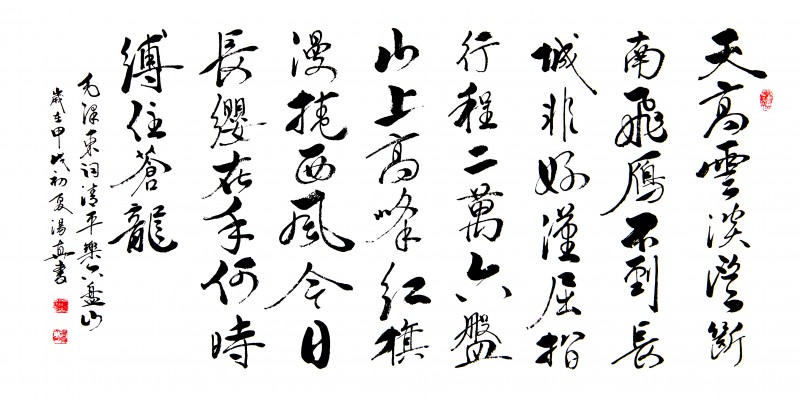 天高雲淡望斷
南飛鴈不到長
城非好漢屈指
行程二萬六盤
山上高峰紅旗
漫捲西風今日
長纓在手何時
縛住蒼龍
毛澤東詞清平樂六盤山
歲在甲戌初夏湯真書